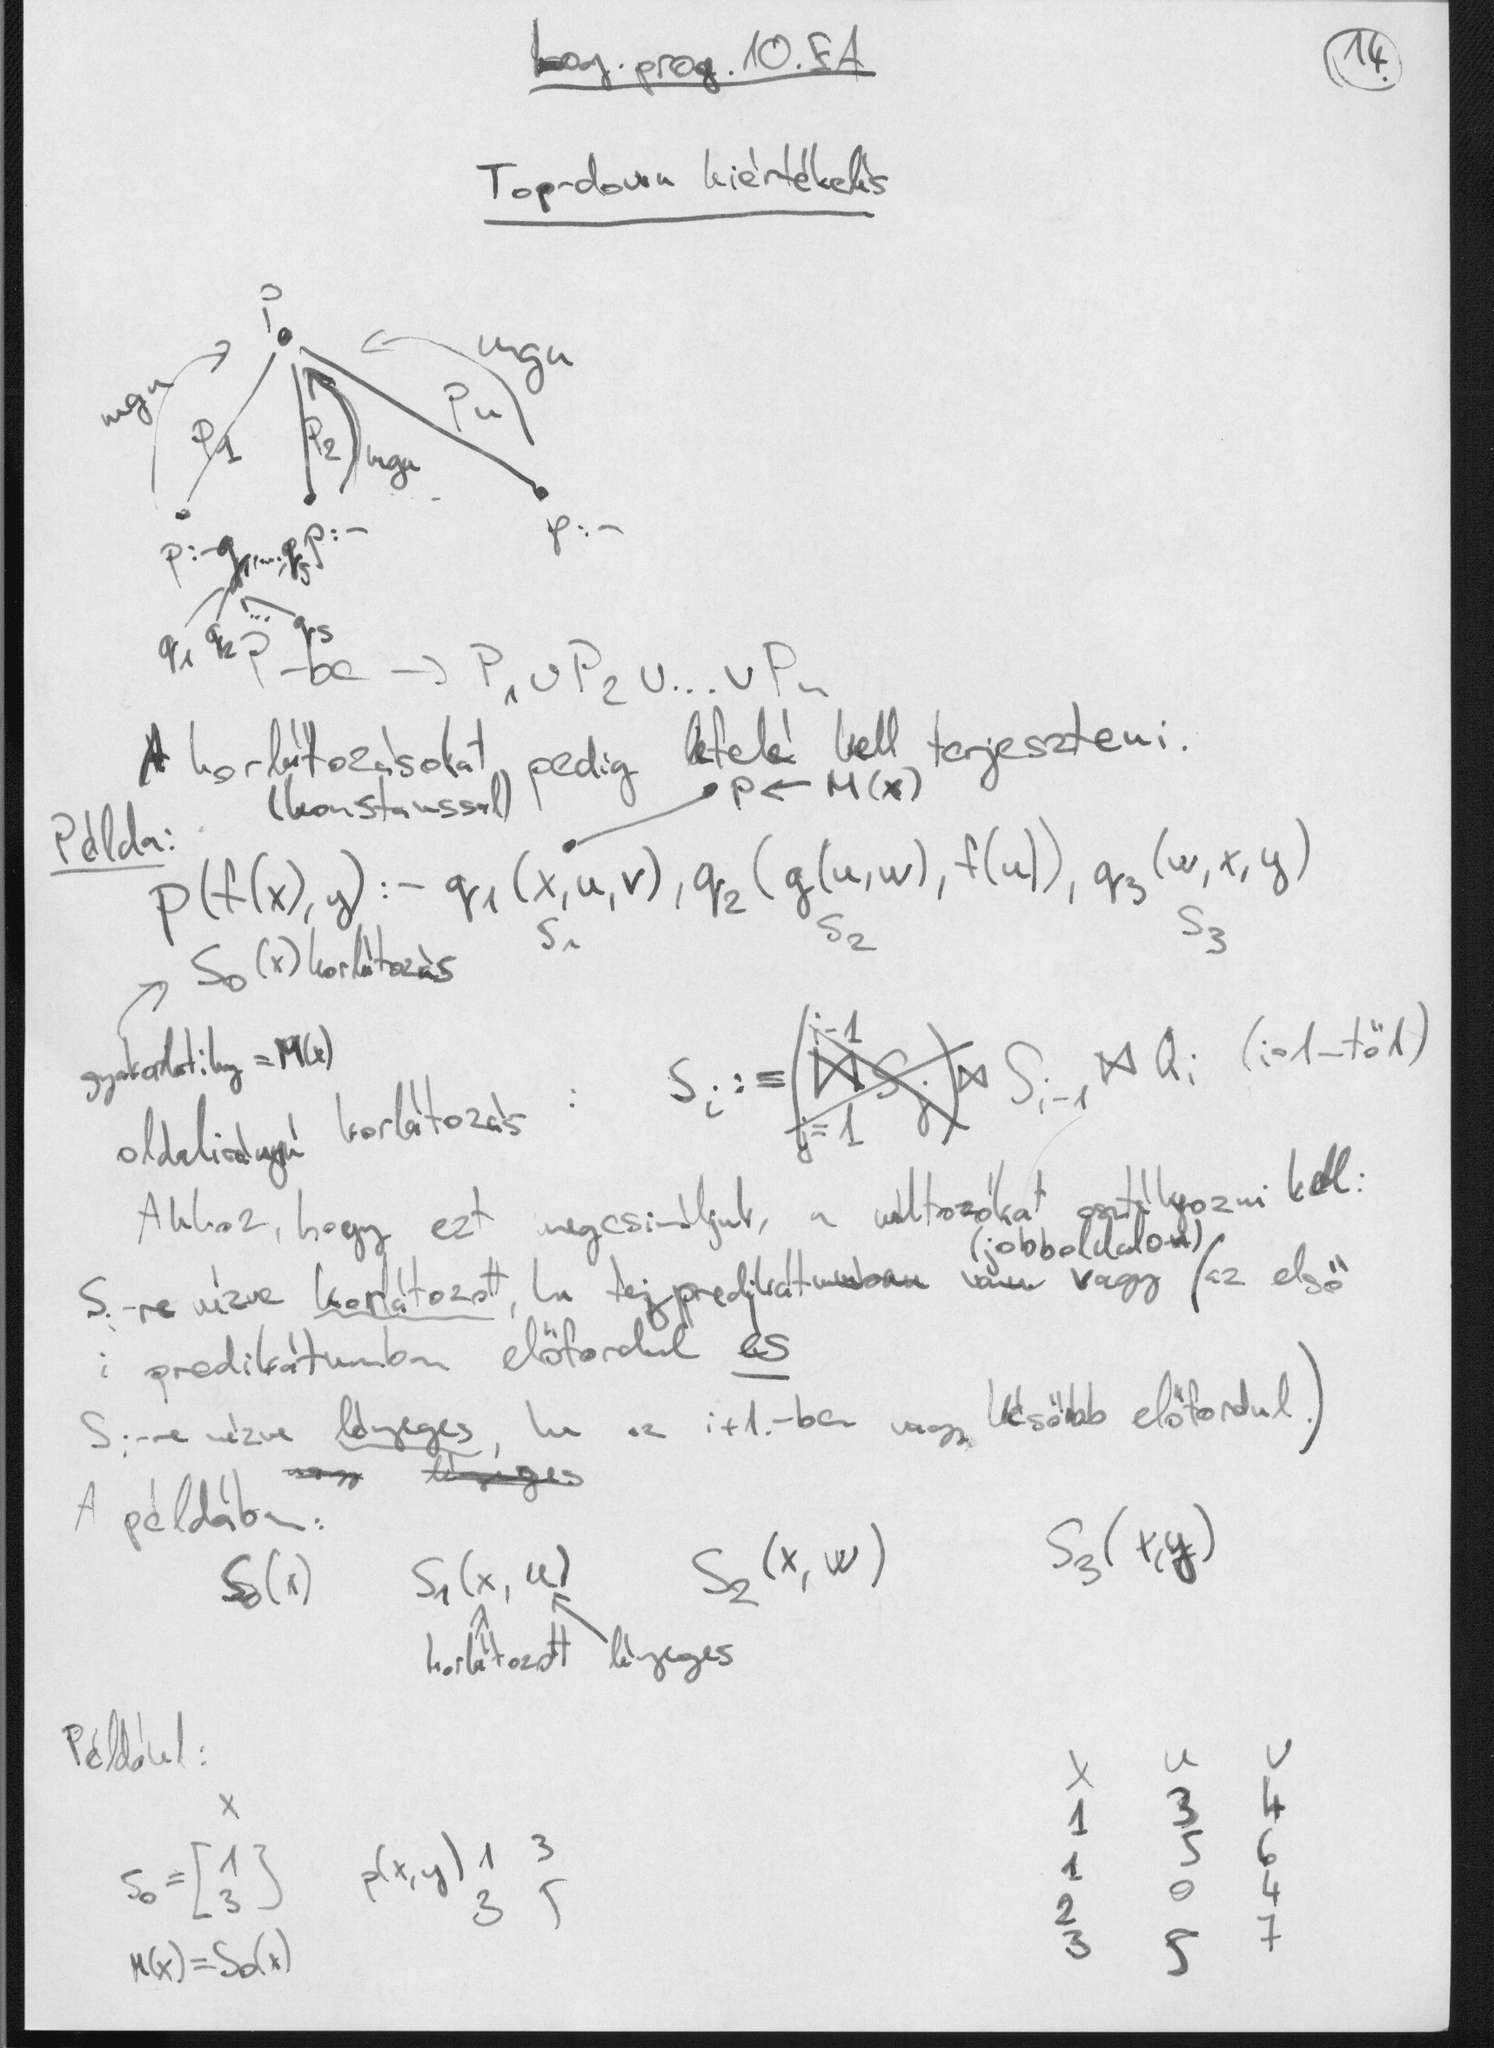 Log. prog. 10. EA
14.
Top-down kiértékelés
P
mgu
mgu
P1
P2
mgu
Pn
p:-q1,...,qs
p:-
p:-
q1 q2 ... qs
P-be → P1 ∪ P2 ∪ ... ∪ Pn
A korlátozásokat pedig lefelé kell terjeszteni.
(konstanssal)
p ← M(x)
Példa:
p(f(x), y) :- q1(x,u,v), q2(g(u,w), f(u)), q3(w,x,y)
S1 S2 S3
S0(x) korlátozás
gyakorlatilag = M(x)
oldalirányú korlátozás : Si := (⋈ j=1 i-1 Sj) ⋈ Si-1 ⋈ Qi (i=1-től)
Ahhoz, hogy ezt megcsináljuk, a változókat osztályozni kell:
(jobboldalon)
Si-re nézve korlátozott, ha fejpredikátumban van vagy (az első
i predikátumban előfordul és
Si-re nézve lényeges, ha az i+1.-ben vagy később előfordul.)
vagy lényeges
A példában:
S0(x) S1(x, u) S2(x, w) S3(x,y)
korlátozott lényeges
Például:
x
S0 = [1 3]
p(x,y) 1 3
3 5
M(x) = S0(x)
x u v
1 3 4
1 5 6
2 0 4
3 5 7